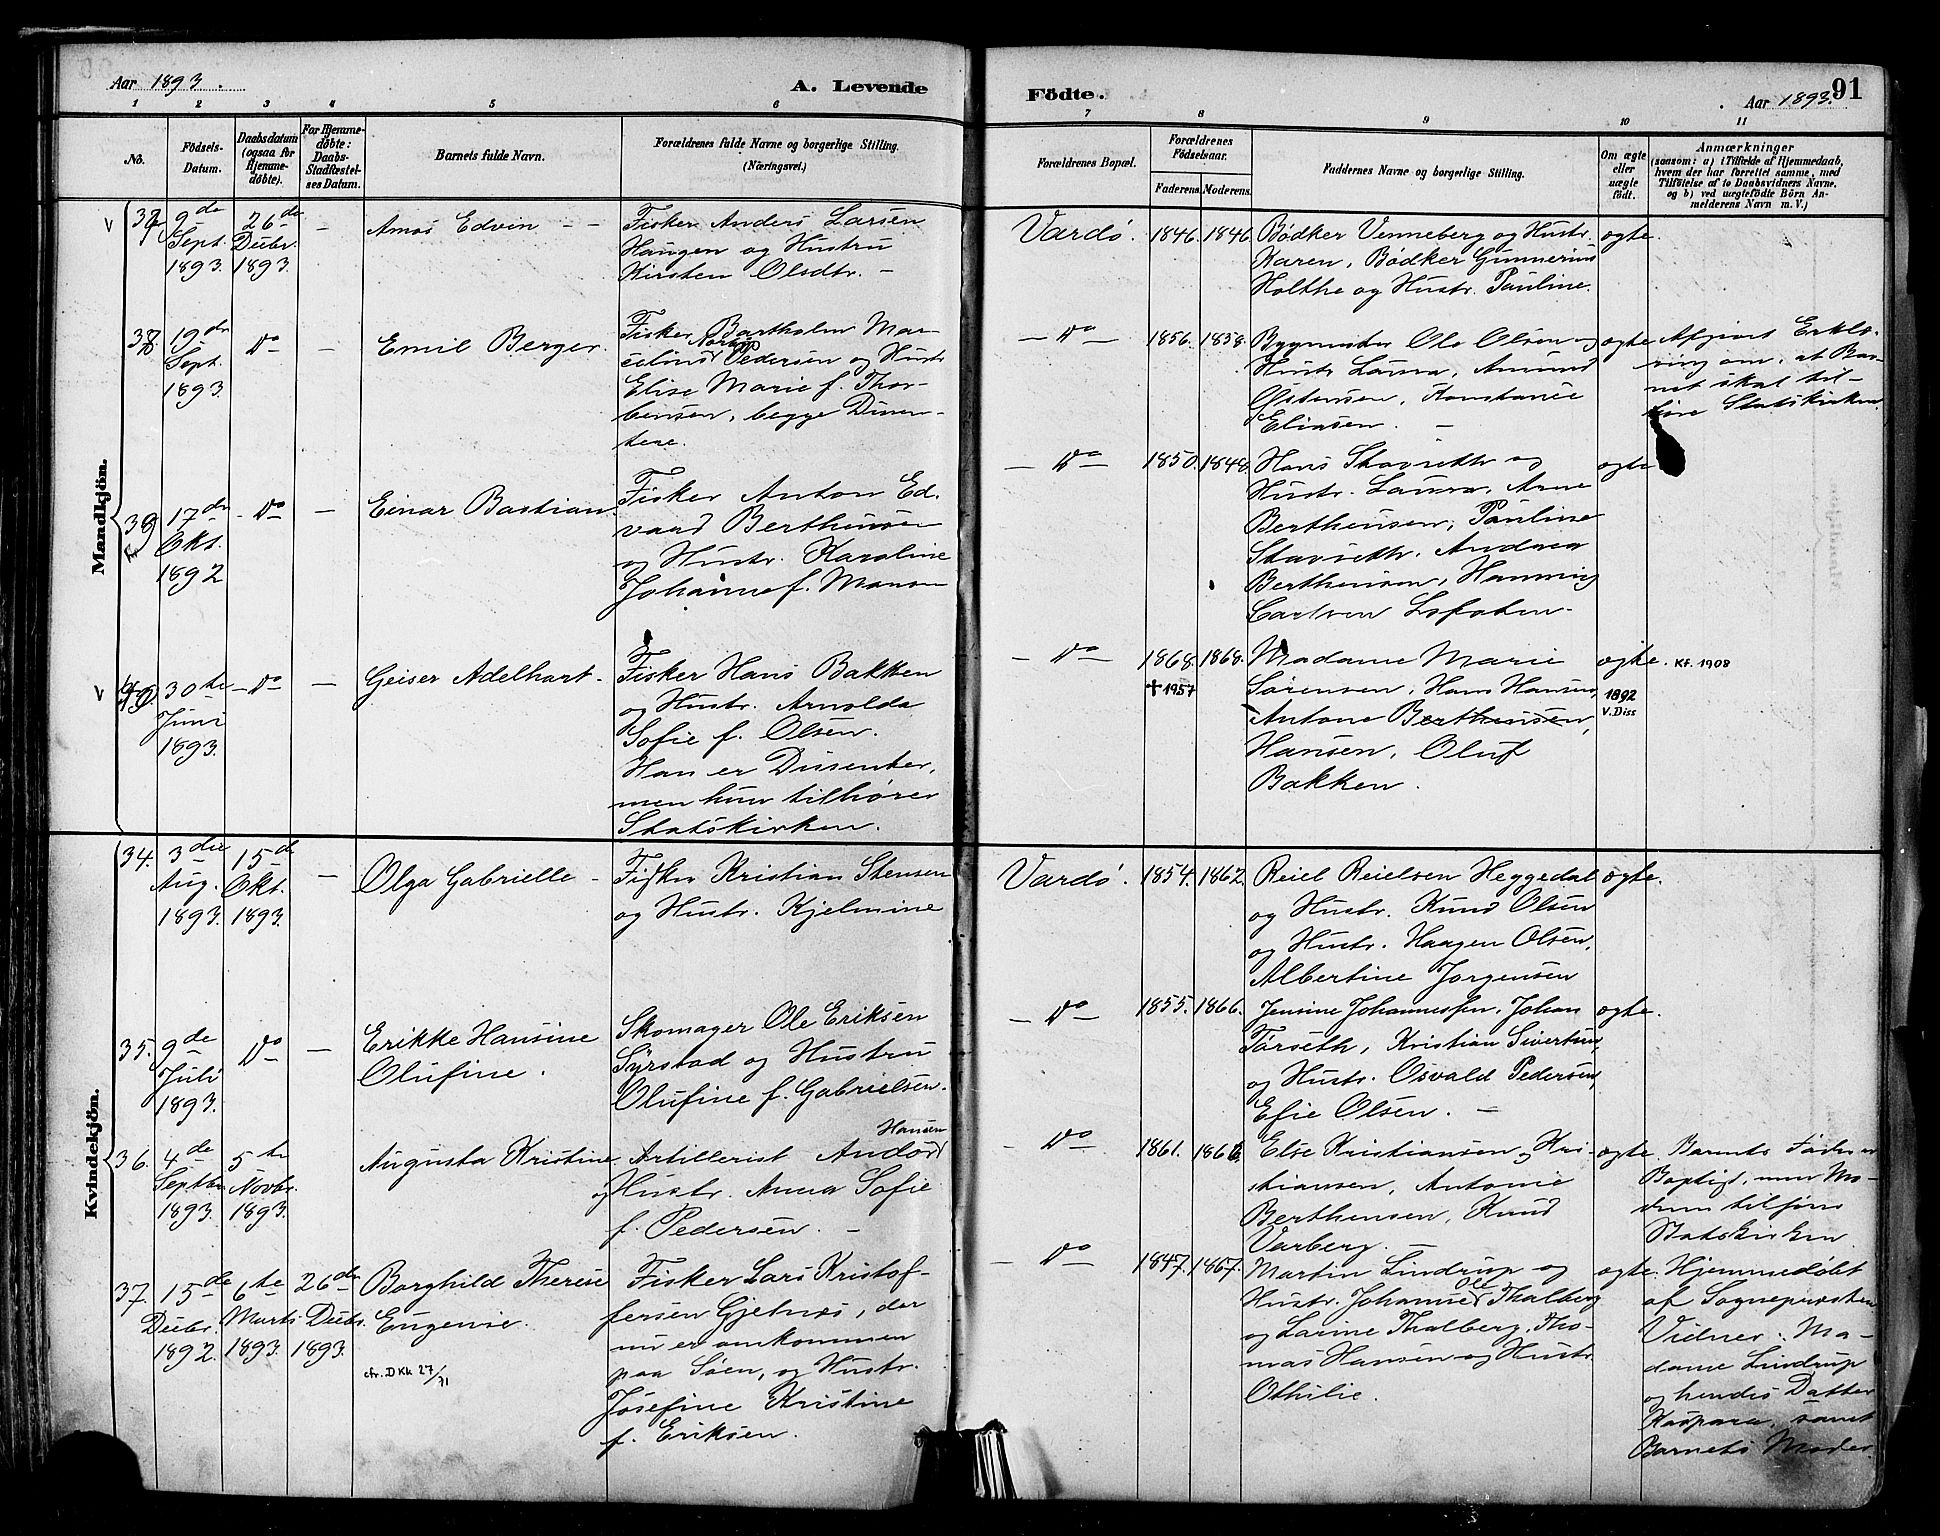 Aar 1893.
A. Levende
Födte.
Aar 1893.
91
1 2 3 4 5 6 7 8 9 10 11
No.
Födsels-
Datum.
Daabsdatum
(ogsaa for
Hjemme-
døbte).
For Hjemme-
døbte:
Daabs-
Stadfæstel-
ses Datum.
Barnets fulde Navn.
Forældrenes fulde Navne og borgerlige Stilling.
(Næringsvei.)
Forældrenes Bopæl.
Forældrenes
Födselsaar.
Faderens.
Moderens.
Faddernes Navne og borgerlige Stilling.
Om ægte
eller
uægte
födt.
Anmærkninger
(saasom: a) i Tilfælde af Hjemmedaab,
hvem der har forrettet samme, med
Tilföielse af to Daabsvidners Navne,
og b) ved uægtefödte Börn An-
melderens Navn m. V.)
Mandkjön.
V
37.
9de
Sept.
1893.
26de
Decbr.
1893.
—
Amos Edvin — —
Fisker Anders Larsen
Haugen og Hustru
Kirsten Olsdtr. —
Vardö.
1846.
1846.
Bödker Venneberg og Hustr.
Karen, Bödker Gunnerius
Holthe og Hustr. Pauline.
ægte.
38.
19de
Sept.
1893.
Do
—
Emil Berger.
Fisker Bartholm Mar-
celius Pedersen og Hustr.
Elise Marie f. Thor-
bensen, begge Dissen-
tere.
— Do —
1856.
1858.
Bygmester Ole Olsen og
Hustr. Laura, Amund
Östensen, Konstance
Eliasen. —
ægte
Afgivet Erklæ-
ring om, at Bar-
net skal til-
høre Statskirken.
39
17de
Okt.
1892
— Do —
—
Einar Bastian.
Fisker Anton Ed-
vard Berthensen
og Hustr. Karoline
Johanne f. Monsen
— Do —
1850.
1848.
Hans Stavseth og
Hustr. Laura, Arne
Berthensen, Pauline
Stavseth, Andrea
Berthensen, Henning
Carlsen Lofoten.
ægte
V
40.
30te
Juni
1893.
— Do —
—
Geiser Adelhart.
Fisker Hans Bakken
og Hustr. Arnolda
Sofie f. Olsen.
Han er Dissenter,
men hun tilhører
Statskirken.
— Do —
1868.
✝1957
1868.
Madame Marie
Sörensen, Hans Hansen,
Antone Berthensen,
Hansen, Oluf
Bakken.
ægte.
1892
V. Diss
Kf. 1908
Kvindekjön.
34.
3die
Aug.
1893.
15de
Okt.
1893.
—
Olga Gabrielle —
Fisker Kristian Stensen
og Hustr. Kjelmine
Vardö.
1854.
1862.
Reiel Reielsen Heggedal
og Hustr. Knud Olsen
og Hustr. Haagen Olsen,
Albertine Jorgensen
ægte.
35.
9de
Juli
1893.
Do
—
Erikke Hansine
Olufine.
Skomager Ole Eriksen
Syrstad og Hustru
Olufine f. Gabrielsen.
— Do —
1855.
1866.
Jensine Johannessen, Johan
Torseth, Kristian Sivertsen,
og Hustr. Osvald Pedersen,
Efie Olsen. —
ægte.
36.
4de
Septbr.
1893.
5te
Novbr.
1893.
Augusta Kristine
Hansen
Artillerist Andor
og Hustr. Anna Sofie
f. Pedersen. —
— Do —
1861.
1866.
Else Kristiansen, Kri-
stiansen, Antonie
Berthensen, Knud
Varberg. —
ægte.
Barnets Fader er
Baptist, men Mo-
deren tilhører
Statskirken.
37.
15de
Decbr.
1892.
6te
Marts
1893.
26de
Decbr.
1893.
Borghild Therese
Eugenie.
cfr. DKk 27/71
Fisker Lars Kristof-
fersen Gjelnæs, der
nu er omkommen
paa Søen, og Hustr.
Josefine Kristine
f. Eriksen.
— Do —
1847.
1867.
Martin Lindrup og
Hustr. Johanne, Ole Thalberg
og Larine Thalberg, Tho-
mas Hansen og Hustr.
Othilie.
ægte.
Hjemmedøbt
af Sognepræsten
Vidner: Ma-
dame Lindrup
og hendes Datter
Kaspara, samt
Barnets Moder.